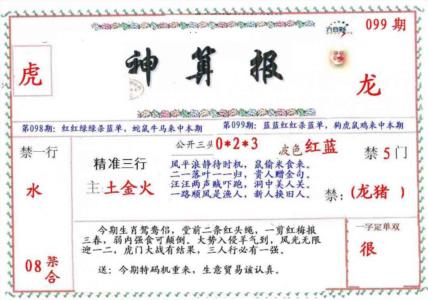 099 期
虎
神算报
龙
第098期：红红绿绿杀蓝单，蛇鼠牛马来中本期
第099期：蓝蓝红红杀蓝单，狗虎鼠鸡来中本期
禁一行
水
08 禁合
精准三行
主土金火
公开三头0*2*3
波色 红蓝
风平浪静待时机，鼠偷米食来。
二一落叶一一归，贵人赠金句。
汪汪两声贼吓跑，洞中美人关。
一路顺风是渔人，新人换旧人。
禁 5 门
禁:(龙猪)
今期生肖鸳鸯侣，堂前二条红头绳，一剪红梅报
三春，弱肉强食可颠倒。大势入侵羊气到，风光无限
迎一二，虎门大战有结果，三人行必有一强。
送：今期特码机重来，生意贸易该认真。
一字定单双
很